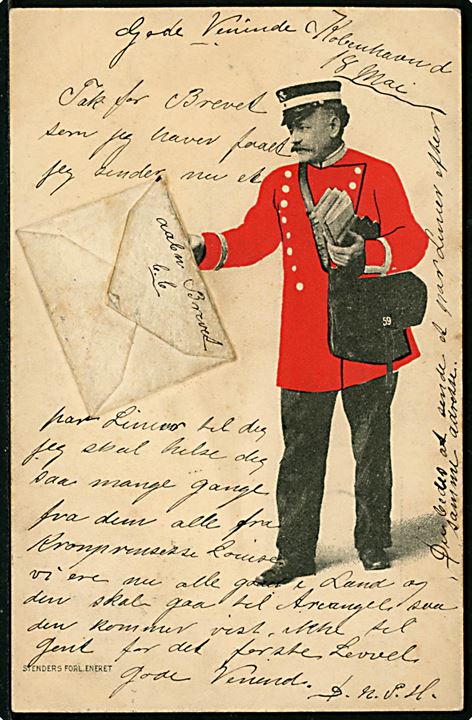 Gode Veninde
København d
18 Mai
Tak for Brevet
som jeg haver faaet
jeg sender nu et
aaben Brevet
par Linier til dig
jeg skal hilse dig
saa mange gange
fra dem alle fra
Kronprinsesse Louise
vi ere nu alle gaaet i Land og
den skal gaa til Arcangel saa
den kommer vist ikke til
Gent for det første Levvel
Gode Venind.
D. N. P. H.
59
STENDERS FORL. ENERET
Du bedes at sende et par Linier efter
samme adresse.